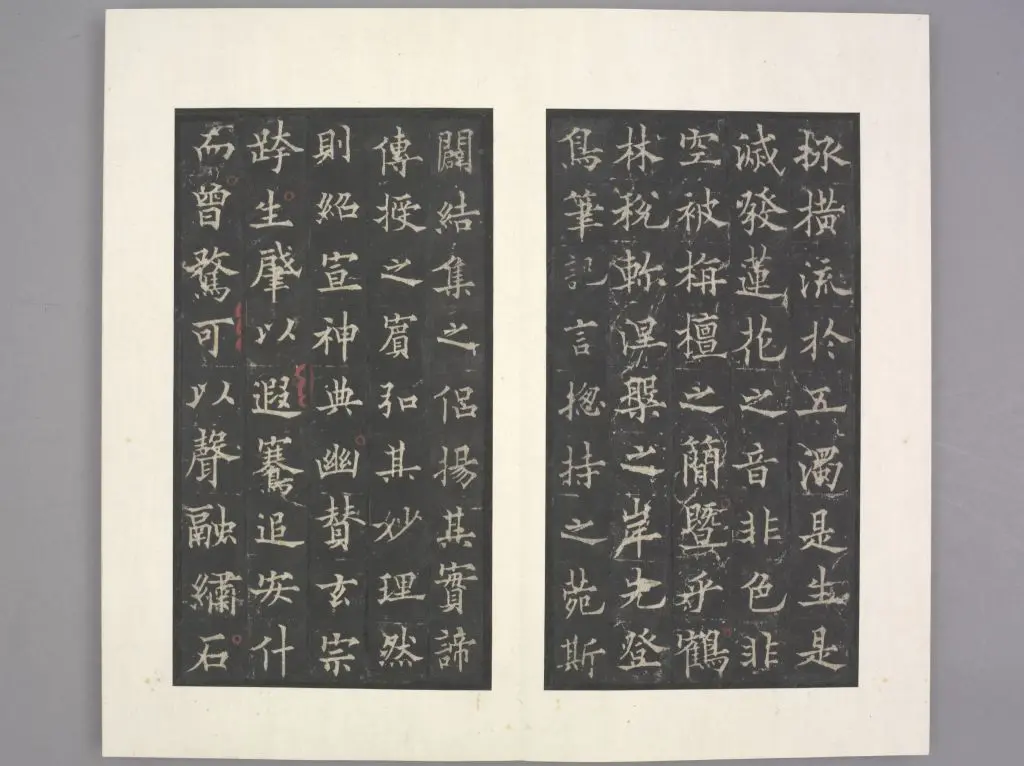 拯橫流於五濁是生是
滅發蓮花之音非色非
空被栴檀之簡暨乎鶴
林稅軫涅槃之岸先登
鳥筆記言揔持之菀斯
闢結集之侶揚其實諦
傳授之賓弘其妙理然
則紹宣神典幽贊玄宗
跨生肇以遐騫追安什
而曾騖可以聲融繡石